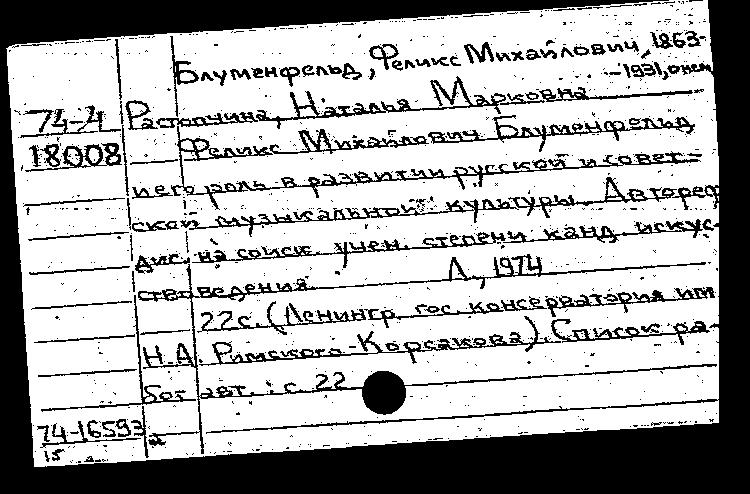 Блуменфельд, Феликс Михайлович, 1863-
-1931, о нем
74-4 Растопчина, Наталья Марковна
18008 Феликс Михайлович Блуменфельд
и его роль в развитии русской и совет-
ской музыкальной культуры. Автореф.
дис. на соиск. учен. степени канд. искус-
ствоведения. Л., 1974
22 с. (Ленингр. гос. консерватория им.
Н.А. Римского-Корсакова). Список ра-
бот авт.: с. 22
74-16593 а
15